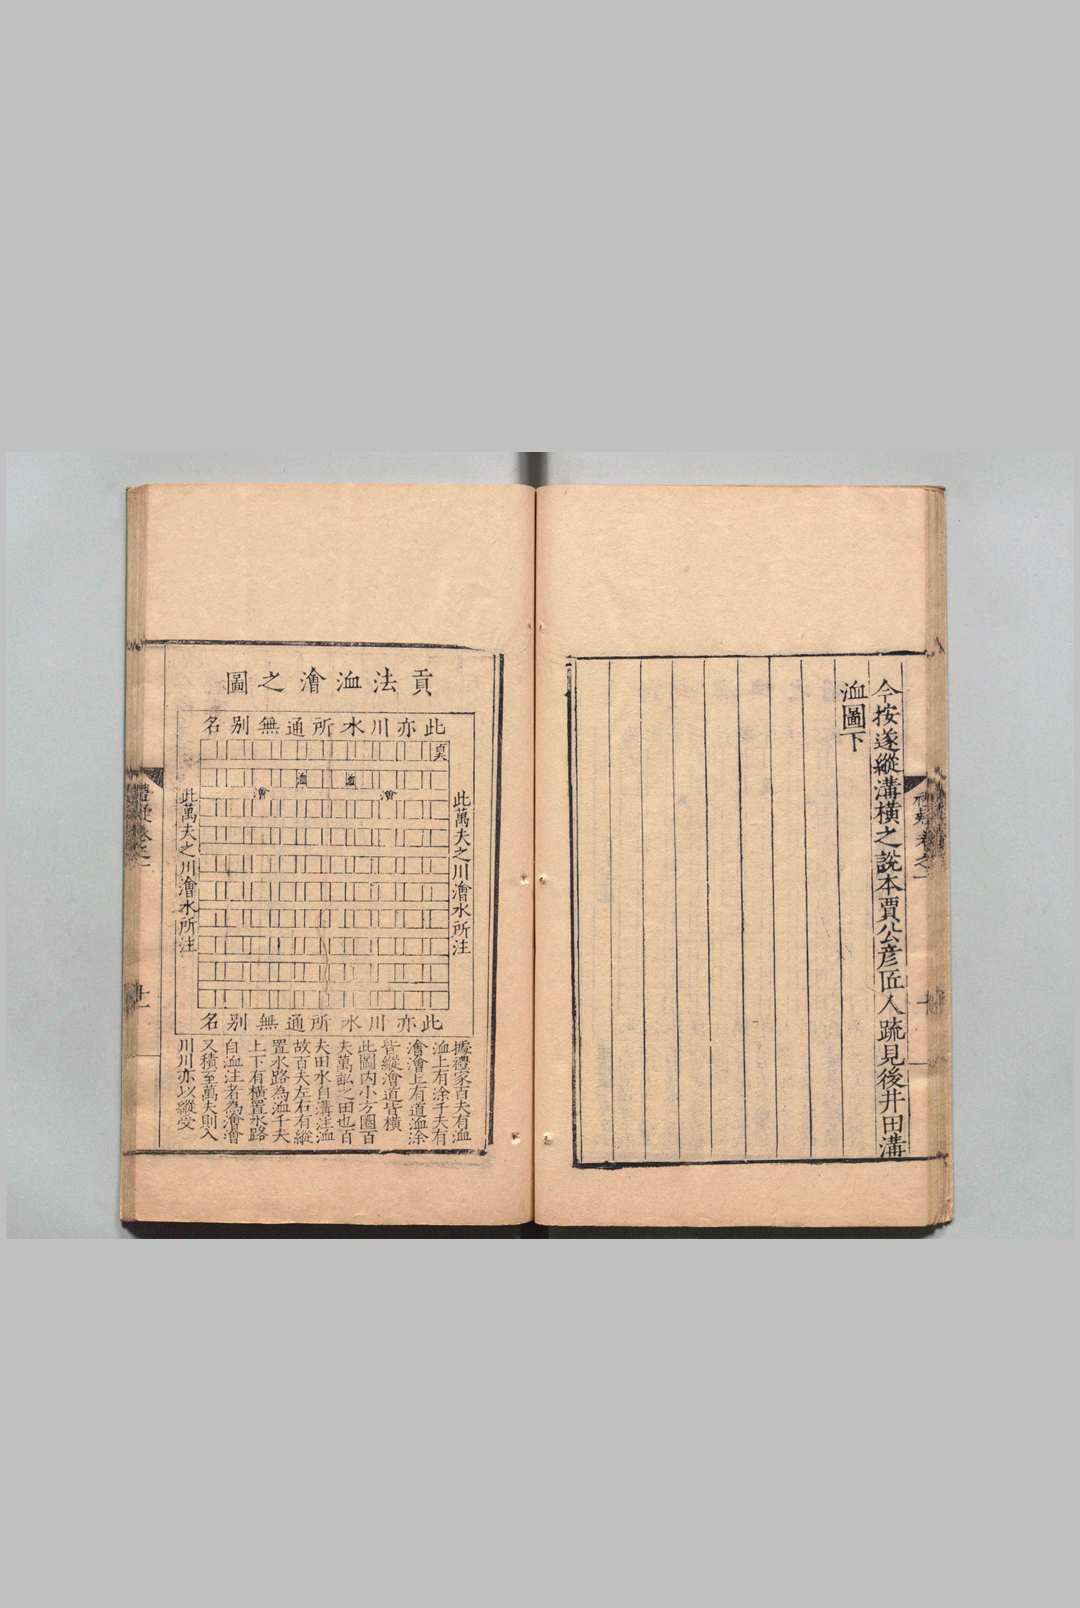 今按遂縱溝橫之說本賈公彥匠人疏見後井田溝
洫圖下
貢法洫澮之圖
此亦川水所通無別名
百夫
洫
洫
澮
澮
此萬夫之川澮水所注
此萬夫之川澮水所注
此亦川水所通無別名
據禮家百夫有洫
洫上有涂千夫有
澮澮上有道洫涂
皆縱澮道皆橫
此圖內小方圈百
夫萬畝之田也百
夫田水自溝注洫
故百夫左右有縱
置水路為洫千夫
上下有橫置水路
自洫注者為澮澮
又積至萬夫則入
川川亦以縱受